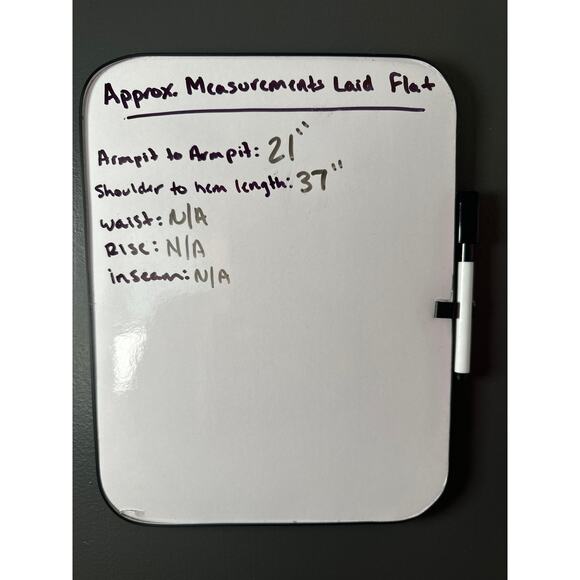 Approx. Measurements Laid Flat
Armpit to Armpit: 21"
Shoulder to hem length: 37"
waist: N/A
Rise: N/A
inseam: N/A